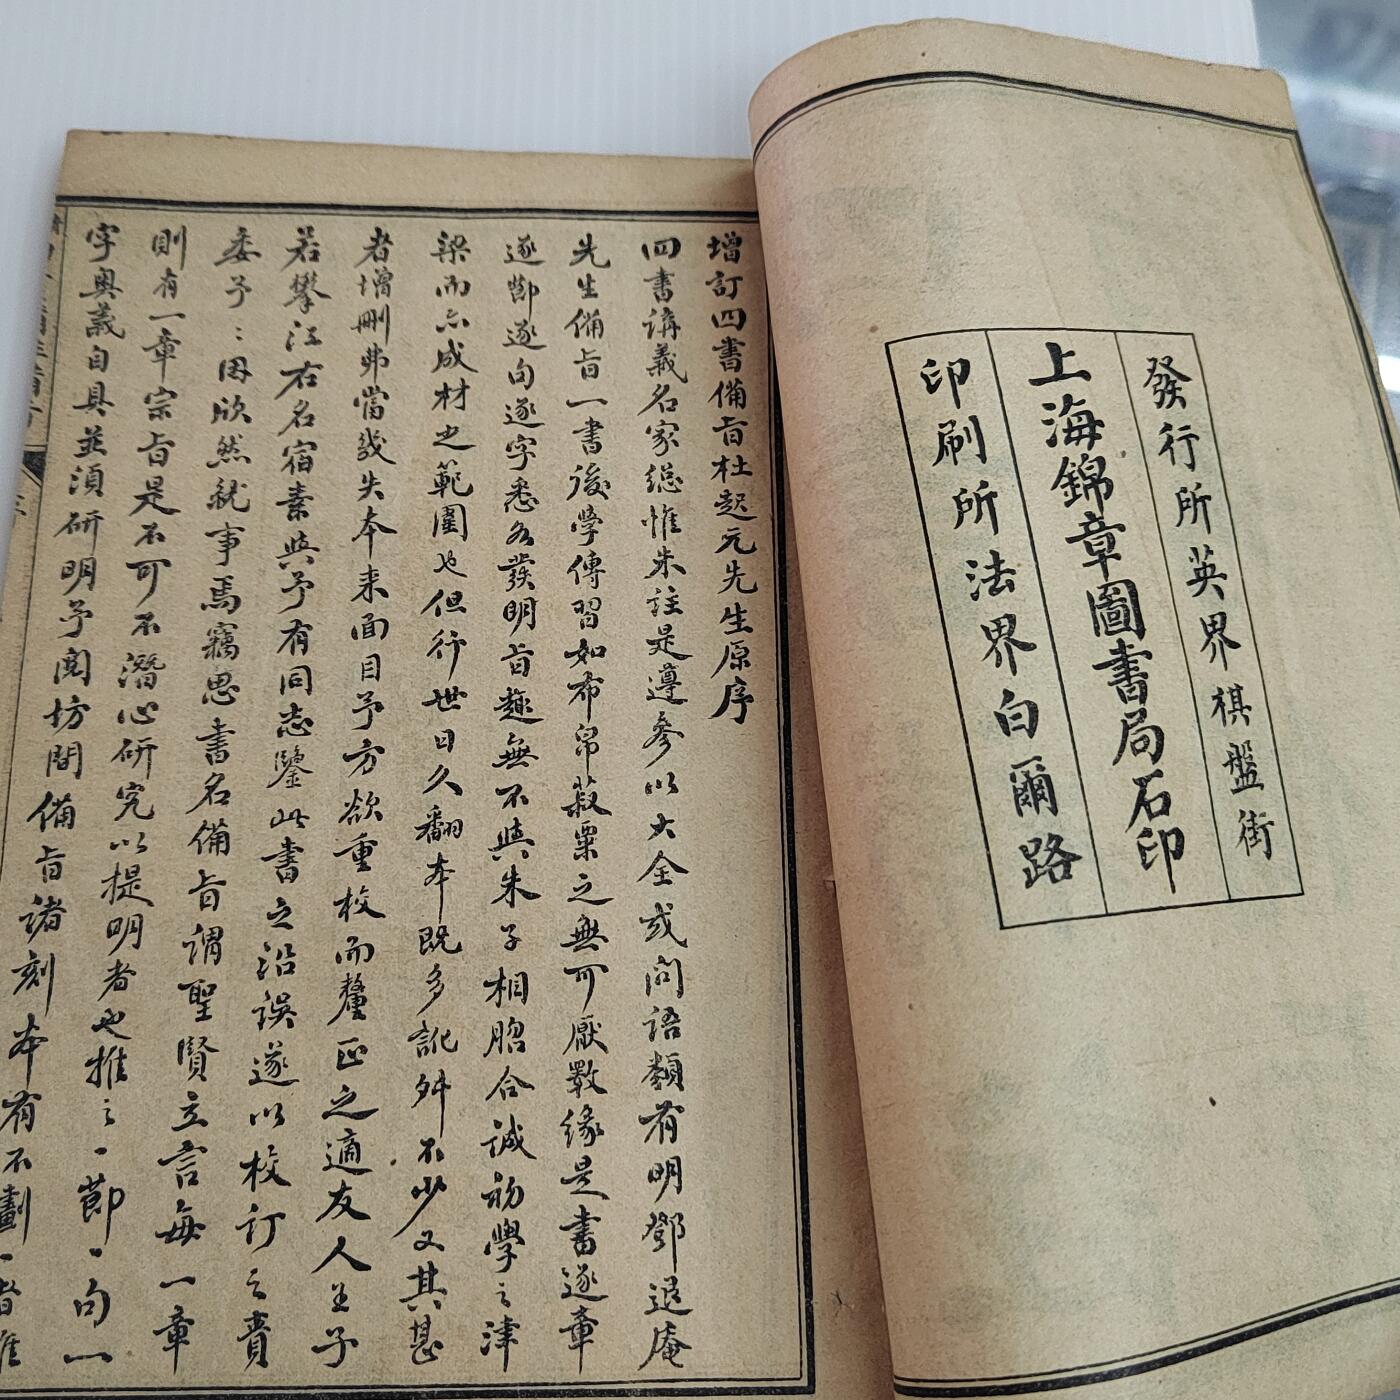 發行所英界棋盤街
上海錦章圖書局石印
印刷所法界白爾路
增訂四書備旨杜起元先生原序
四書講義名家總惟朱註是遵參以大全或問語類有明鄧退庵
先生備旨一書後學傳習如布帛菽粟之無可厭斁緣是書逐章
逐節逐句逐字悉為發明旨趣無不與朱子相脗合誠初學之津
梁而亦成材之範圍也但行世日久翻本既多訛舛不少又其甚
者增刪弗當幾失本來面目予方欲重校而釐正之適友人王子
若攀江右名宿素與予有同志鑒此書之沿誤遂以校訂之責
委予予因欣然就事焉竊思書名備旨謂聖賢立言每一章
則有一章宗旨是不可不潛心研究以提明者也推之一節一句一
字奧義自具並須研明予閱坊間備旨諸刻本有不劃一者